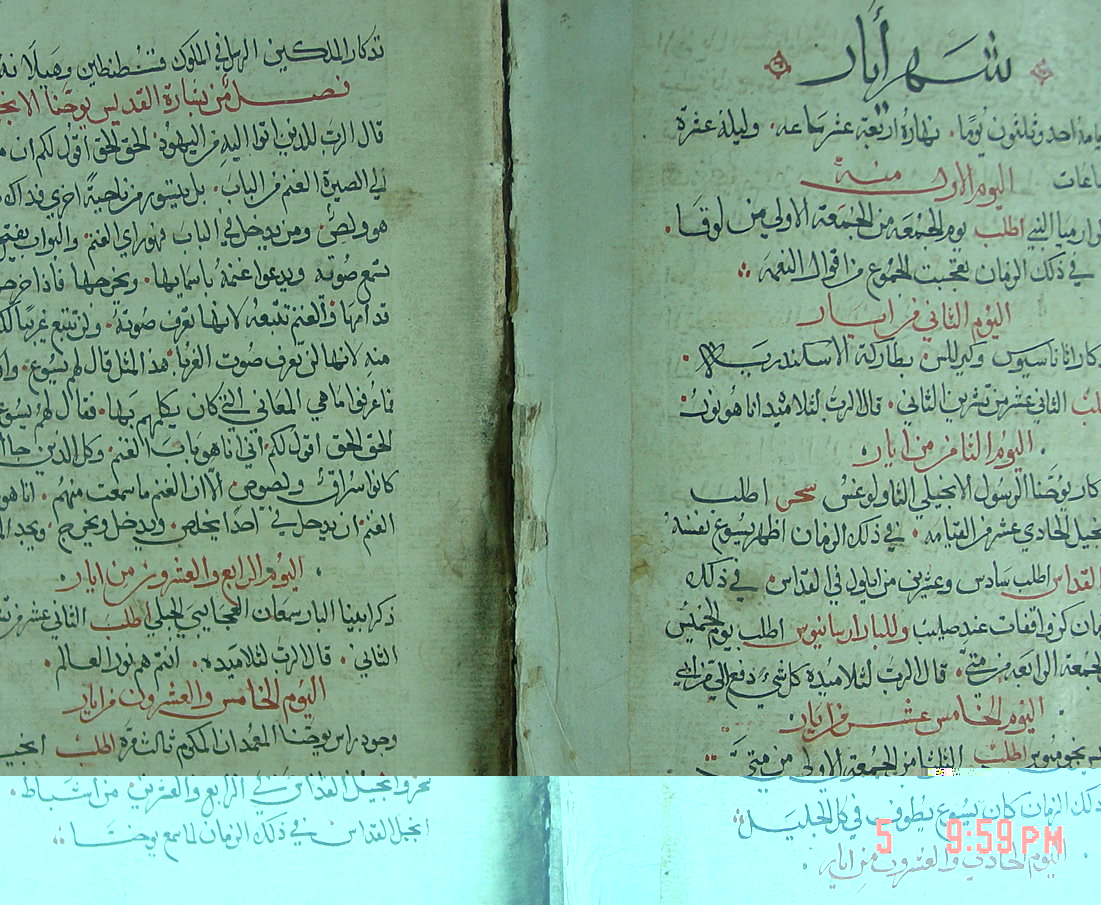 شهر أيار
أيامه احد وثلثون يومًا. نهاره اربعة عشر ساعه. وليله عشرة
ساعات
اليوم الاول منه
ارميا النبي اطلب يوم الجمعه من الجمعة الاولى من لوقا.
في ذلك الزمان تعجبت الجموع من اقوال النعمة
اليوم الثاني من ايار
اتاناسيوس وكيرللس بطاركة الاسكندرية
اطلب الثاني عشر من تشرين الثاني. قال الرب لتلاميذه انا هو نور
اليوم الثامن من ايار.
يوحنا الرسول الانجيلي الثاولوغس سحر اطلب
انجيل الحادي عشر من القيامه. في ذلك الزمان اظهر يسوع نفسه
القداس اطلب سادس وعشرين من ايلول في القداس. في ذلك
الزمان كن واقفات عند صليب وللبار ارسانيوس اطلب يوم الخميس
الجمعة الرابعة من متى. قال الرب لتلاميذه كل شيء دفع الي من ابي
اليوم الخامس عشر من ايار
بخوميوس اطلب الثلثا من الجمعة الاولى من متى
ذلك الزمان كان يسوع يطوف في كل الجليل
اليوم الحادي والعشرون من ايار
5 9:59 PM
تذكار الملكين الرسل في الملوك قسطنطين وهيلانه
فصل من بشارة القديس يوحنا
قال الرب للذين اتوا اليه من اليهود الحق الحق اقول لكم ان
الى صيرة الغنم من الباب. بل يتسور من ناحية اخرى فذاك
هو ولص. ومن يدخل في الباب فهو راعي الغنم. والبواب يفتح
تسمع صوته ويدعوا غنمه باسمايها. ويخرجها فاذا خرج
قدامها والغنم تتبعه لانها تعرف صوته. ولن تتبع غريبًا
منه لانها لن تعرف صوت الغربا. هذا المثل قال لهم يسوع.
فاعرفوا ما هي المعاني التي كان يكلمهم بها. فقال لهم يسوع
الحق الحق اقول لكم. اني انا هو باب الغنم. وكل الذين جاا
كانوا سراق ولصوص. الا ان الغنم ما سمعت منهم. انا هو
الغنم ان يدخل بي احدًا يخلص. ويدخل ويخرج. ويجد
اليوم الرابع والعشرون من ايار.
ذكر ابينا البار سمعان العجايبي الجبلي اطلب الثاني عشر من
الثاني. قال الرب لتلاميذه. انتم هم نور العالم.
اليوم الخامس والعشرون من ايار
وجود راس يوحنا المعمدان المكرم ثالث مرة اطلب
سحر وانجيل القداس في الرابع والعشرين من اشباط.
انجيل القداس. في ذلك الزمان لما سمع يوحنا